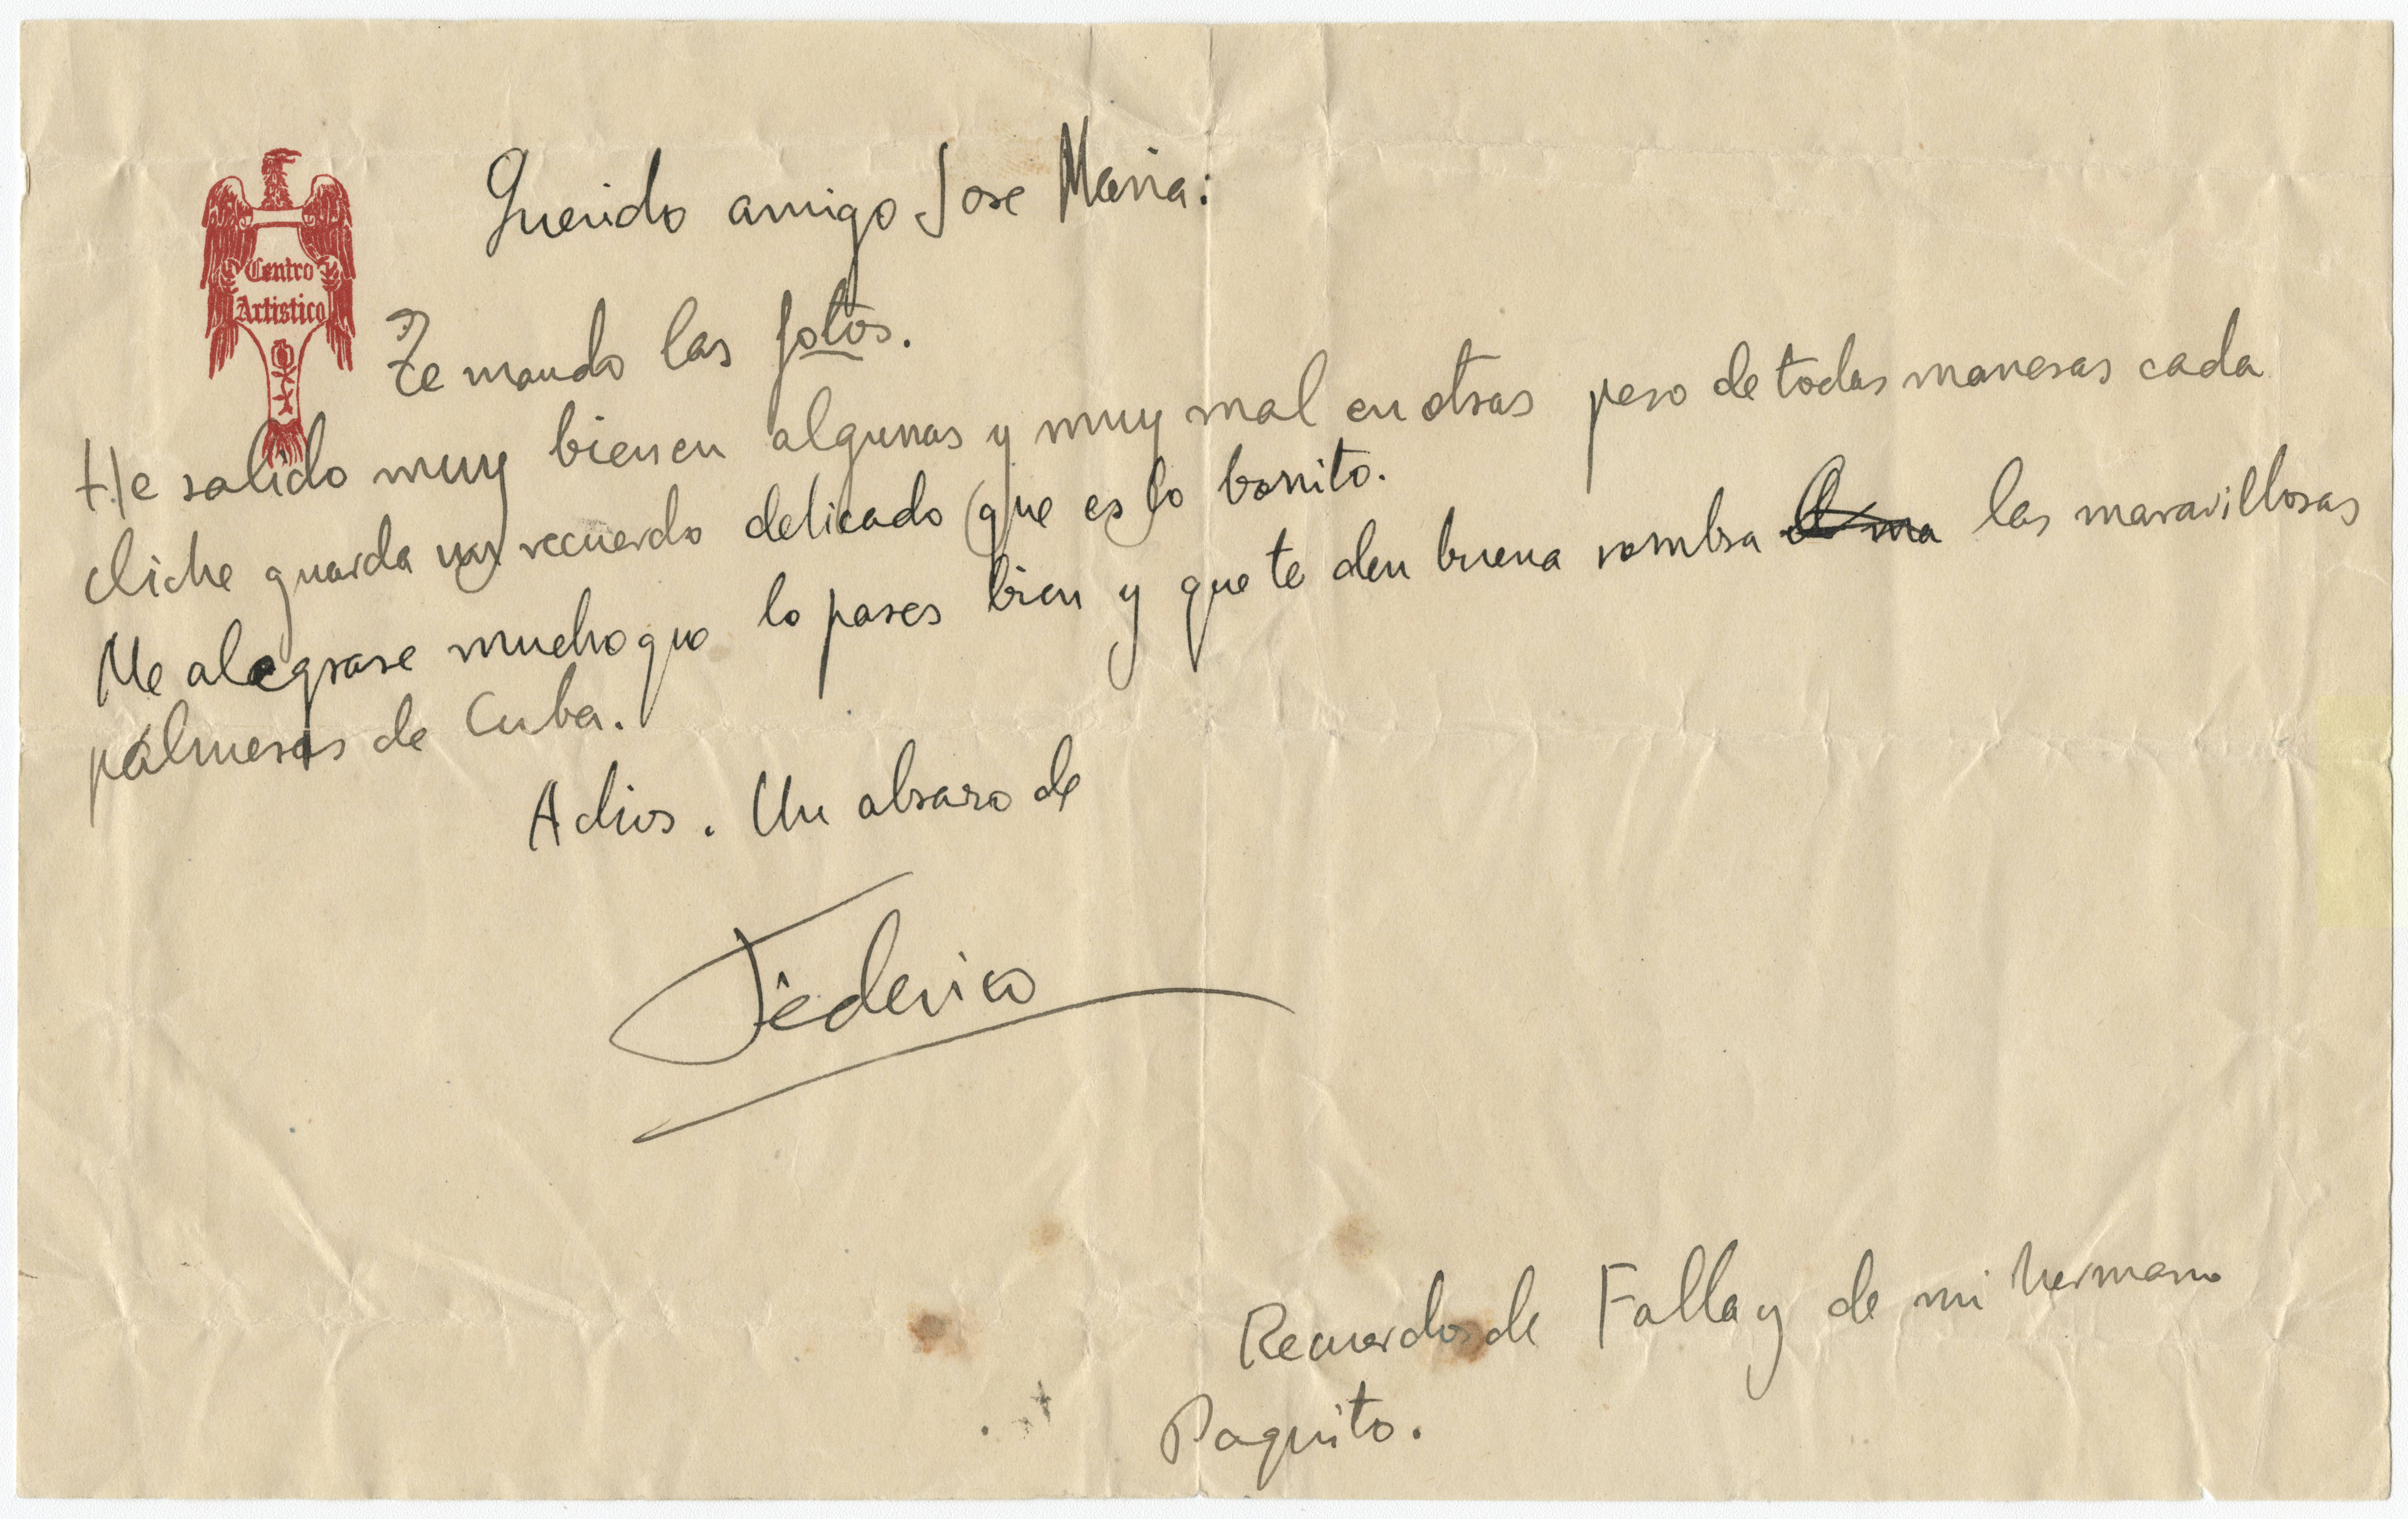 Centro
Artistico
Querido amigo Jose Maria:
Te mando las fotos.
He salido muy bien en algunas y muy mal en otras pero de todas maneras cada
cliche guarda un recuerdo delicado que es lo bonito.
Me alegrare mucho que lo pases bien y que te den buena sombra las maravillosas
palmeras de Cuba.
Adios. Un abrazo de
Federico
Recuerdos de Falla y de mi hermano
Paquito.